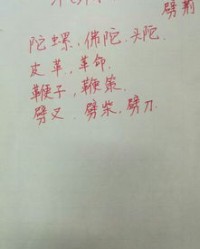 劈荆
陀螺、佛陀、头陀
皮革、革命
鞭子、鞭策
劈叉、劈柴、劈刀